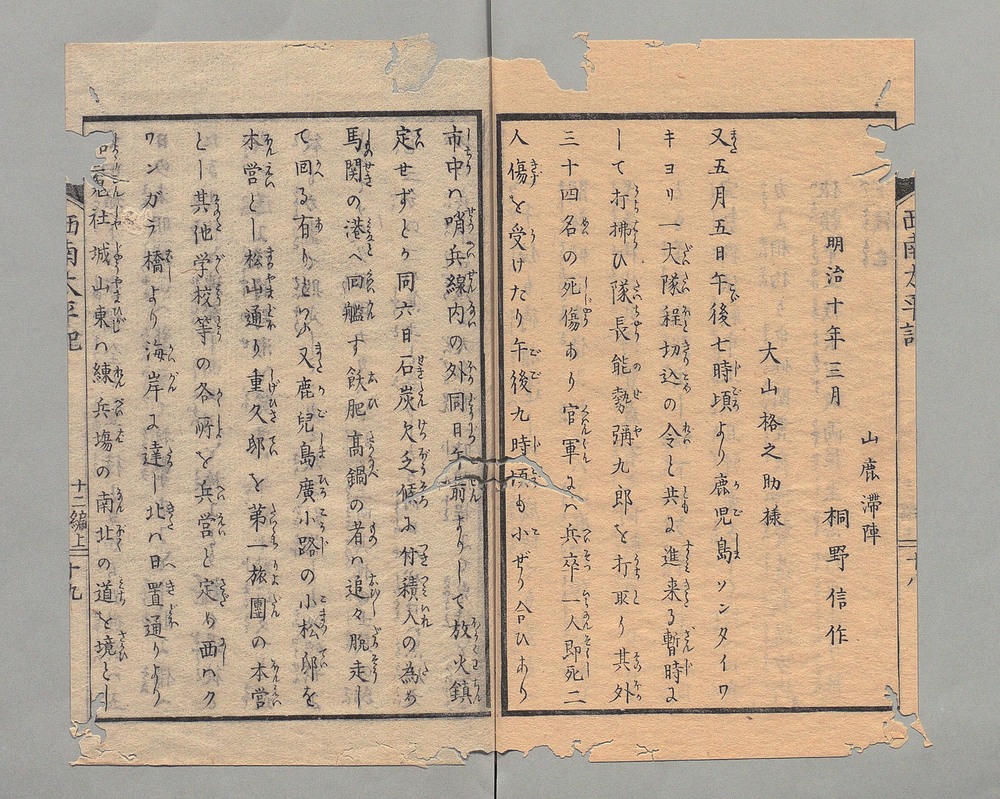 山鹿滯陣
桐野信作
明治十年三月
大山格之助様
又五月五日午後七時頃より鹿児島ソンタイワ
キヨリ一大隊程切込の令と共に進来る暫時に
して打拂ひ隊長能勢彌九郎を打取り其外
三十四名の死傷あり官軍にハ兵卒一人即死二
人傷を受けたり午後九時頃も小ぜり合ひあり
十八
西南太平記
市中ハ哨兵線内の外同日午前よりして放火鎮
定せずとか同六日石炭欠乏候に付積入の為め
馬関の港へ回艦す飫肥高鍋の者ハ追々脱走し
て回る有りといふ又鹿兒島廣小路の小松邸を
本営とし松山通り重久邸を第一旅團の本営
とし其他学校等の各所を兵営と定め西ハク
ワンガラ橋より海岸に達し北ハ日置通りより
社城山東ハ練兵塲の南北の道を境とし
西南太平記
十二編上
十九